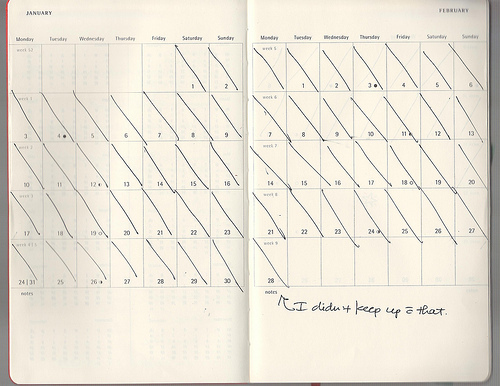 JANUARY
FEBRUARY
Monday Tuesday Wednesday Thursday Friday Saturday Sunday
Monday Tuesday Wednesday Thursday Friday Saturday Sunday
week 52
1 2
week 1
3 4 5 6 7 8 9
week 2
10 11 12 13 14 15 16
week 3
17 18 19 20 21 22 23
24|31 25 26 27 28 29 30
notes
week 5
1 2 3 4 5 6
week 6
7 8 9 10 11 12 13
week 7
14 15 16 17 18 19 20
week 8
21 22 23 24 25 26 27
week 9
28
notes
I didn't keep up = that.